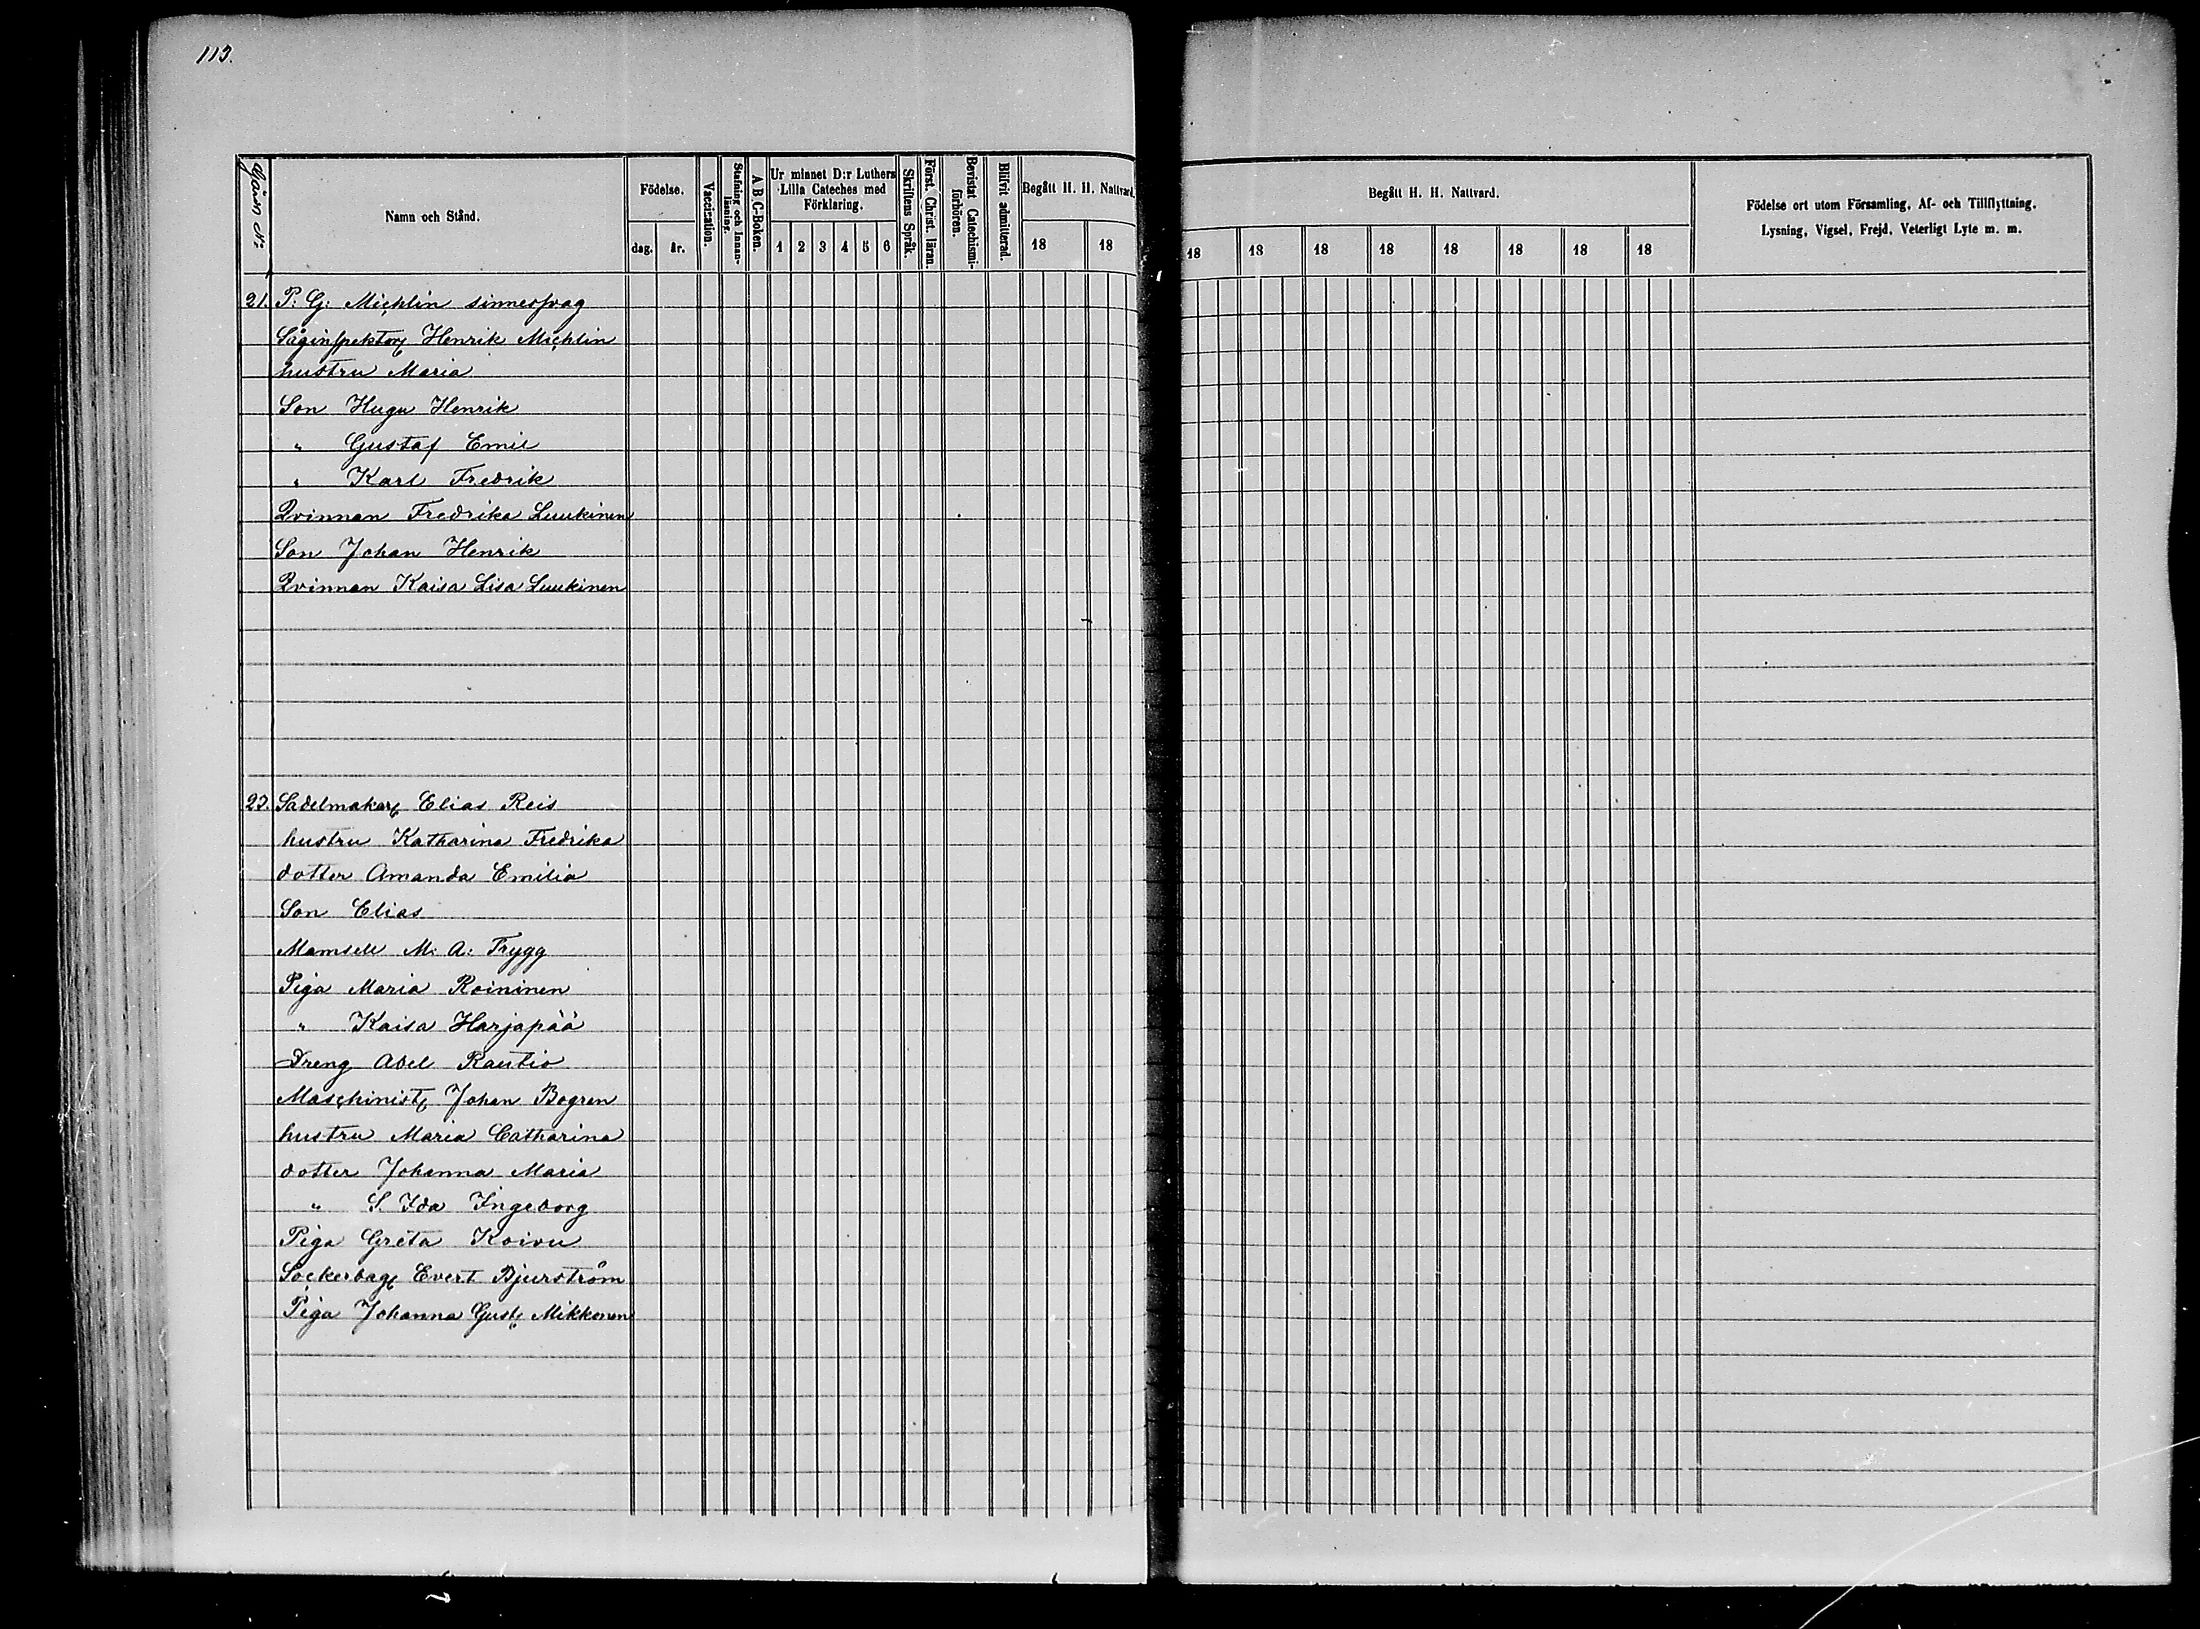 113.
Gård No:
Namn och Stånd.
Födelse.
dag.
år.
Vaccination.
Stafning och Innan-
läsning.
A B C-Boken.
Ur minnet D:r Luthers
Lilla Cateches med
Förklaring.
1 2 3 4 5 6
Skriftens Språk.
Först. Christ. läran.
Bevistat Catechismi-
förhören.
Blifvit admitterad.
Begått H. H. Nattvard.
18 18
Begått H. H. Nattvard.
18 18 18 18 18 18 18 18
Födelse ort utom Församling, Af- och Tillflyttning,
Lysning, Vigsel, Frejd, Veterligt Lyte m. m.
21. P: G: Michlin sinnessvag
Såginspektor Henrik Michlin
hustru Maria
Son Hugu Henrik
" Gustaf Emil
" Karl Fredrik
Qvinnan Fredrika Luukinen
Son Johan Henrik
Qvinnan Kaisa Lisa Luukinen
23. Sadelmakare Elias Reis
hustru Katharina Fredrika
dotter Amanda Emilia
Son Elias
Mamsell M: A: Frygg
Piga Maria Roininen
" Kaisa Harjapää
Dreng Abel Rautio
Maschinist Johan Bogren
hustru Maria Catharina
dotter Johanna Maria
" S. Ida Ingeborg
Piga Greta Koivu
Sockerbag Evert Bjurström
Piga Johanna Gust. Mikkonen